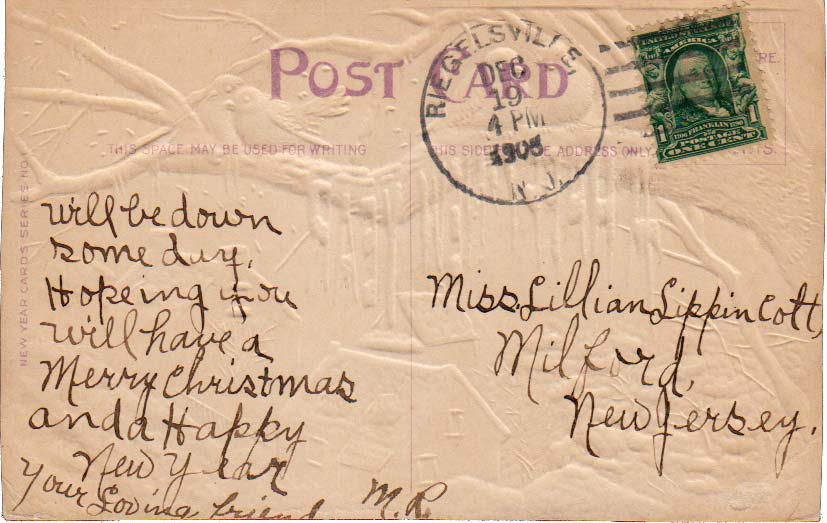 POST CARD
THIS SPACE MAY BE USED FOR WRITING
THIS SIDE ADDRESS ONLY
NEW YEAR CARDS SERIES NO
RIEGELSVILLE
DEC
19
4 PM
N.J.
UNITED STATES
AMERICA
1 FRANKLIN 1
POSTAGE
ONE CENT
will be down
some day.
Hopeing you
will have a
Merry Christmas
and a Happy
New Year
your Loving friend M.R.
Miss. Lillian Lippincott,
Milford,
New Jersey.